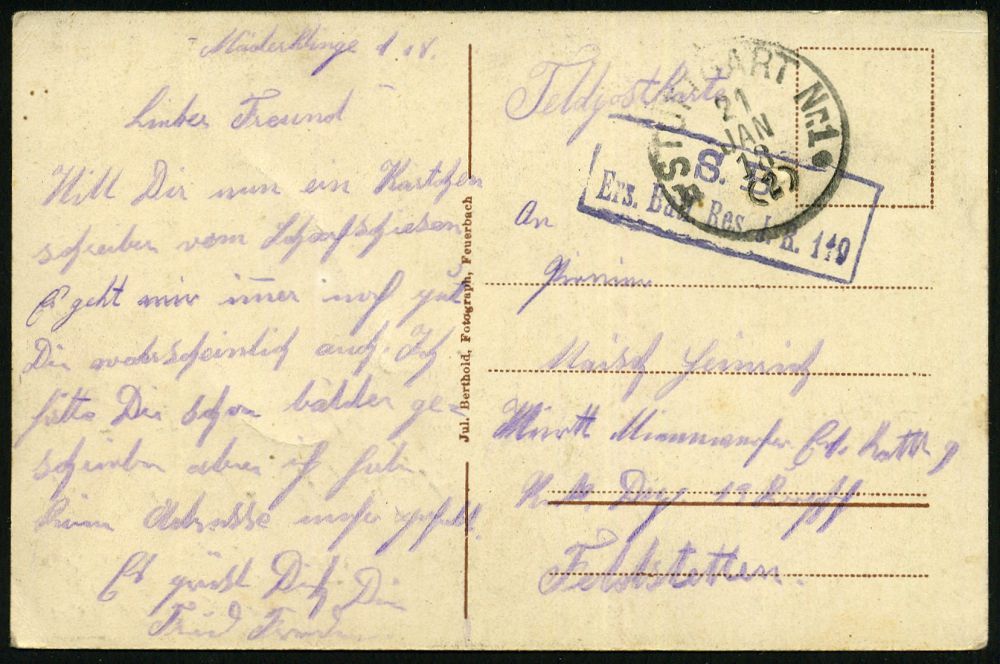 Lieber Freund
Will Dir nun ein Kärtchen
schreiben vom Scharfschiesen
Es geht mir imer noch gut
Dir warscheinlich auch. Ich
hätte Dir schon balder ge-
schrieben aber ich habe
keine Adresse mehr gehabt.
Es grüßt Dich Dein
Jul. Berthold, Fotograph, Feuerbach
Feldpostkarte
STUTTGART Nr. 1
21
JAN
18
S. B.
Ers. Batl. Res. I. R. 119
An
Pionier
Heinrich
Württ Minenwerfer
19
Feldstetten.